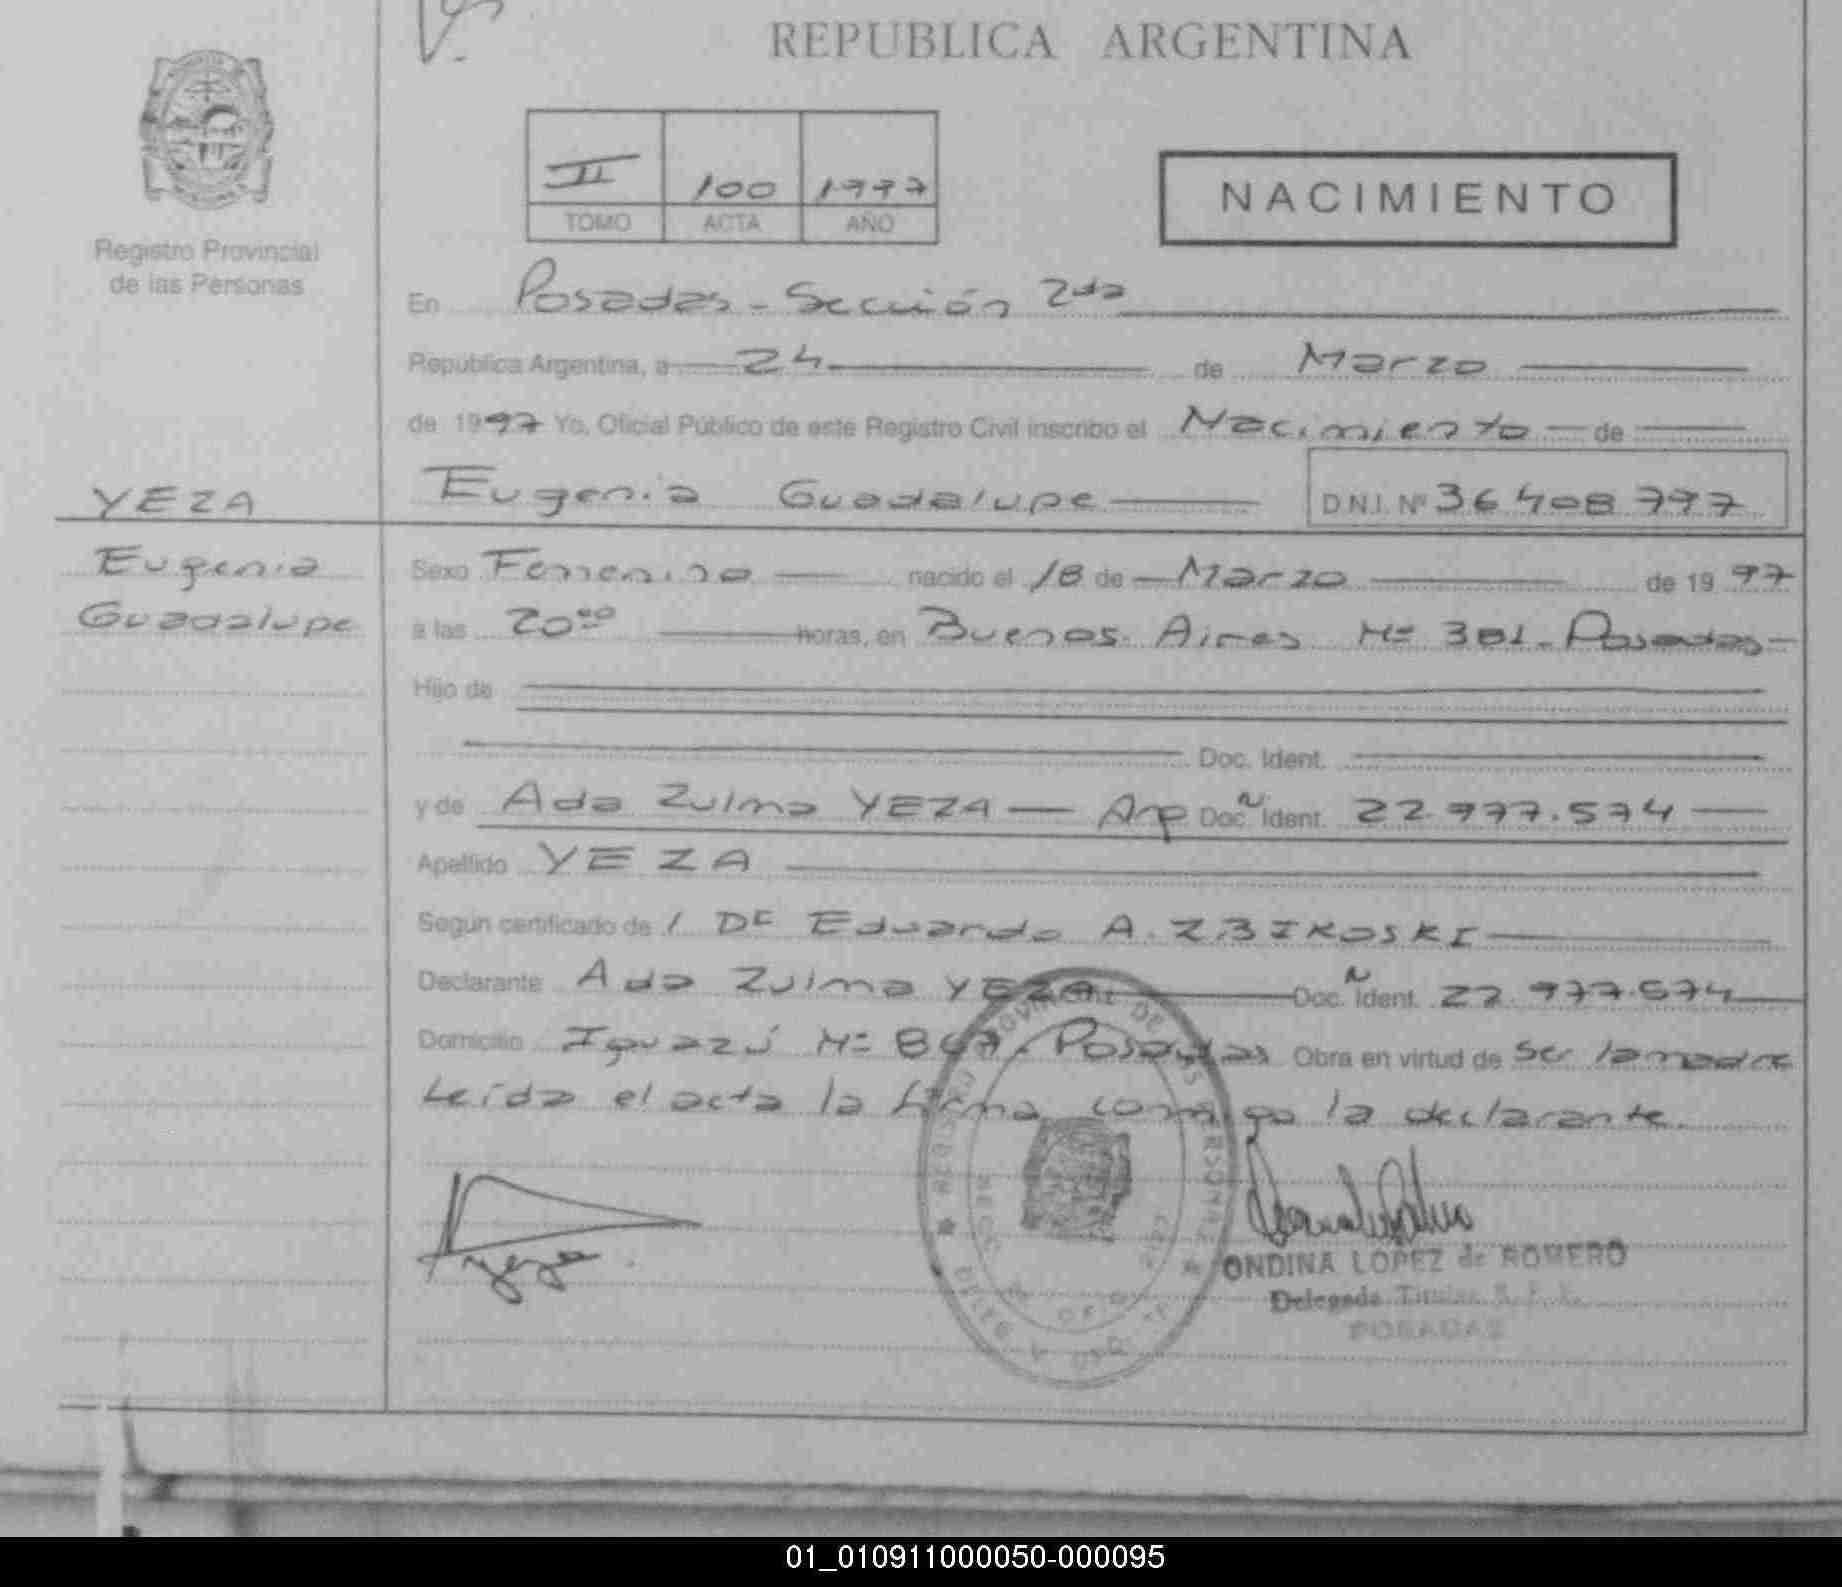 REPUBLICA ARGENTINA
II 100 1997
TOMO ACTA AÑO
NACIMIENTO
Registro Provincial
de las Personas
En Posadas - Sección 2da
República Argentina, a 24 de Marzo
de 1997 Yo, Oficial Público de este Registro Civil inscribo el Nacimiento de
YEZA
Eugenia Guadalupe
D.N.I. Nº 36 408 797
Eugenia
Guadalupe
Sexo Femenino nacido el 18 de Marzo de 1997
a las 20 00 horas, en Buenos Aires Nº 381 - Posadas -
Hijo de
Doc. Ident.
y de Ada Zulma YEZA Arg Doc. Ident. 22.977.574
Apellido YEZA
Según certificado de / Dr Eduardo A. ZBIKOSKI
Declarante Ada Zulma YEZA Doc. Ident. 22.977.574
Domicilio Iguazú Nº Posadas Obra en virtud de ser la madre
Leída el acta la firma conmigo la declarante.
ONDINA LOPEZ de ROMERO
Delegada Titular R. P. P.
POSADAS
01_010911000050-000095